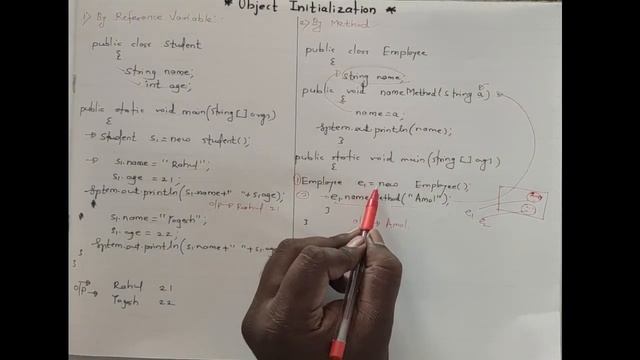 * Object Initialization *
1) By Reference Variable:-
public class Student
{
String name;
int age;
public static void main(String[] args)
{
Student s1=new student();
s1.name="Rahul";
s1.age=21;
System.out.println(s1.name+" "+s1.age);
O/P→ Rahul 21
s1.name="Yogesh";
s1.age=22;
System.out.println(s1.name+" "+s1.age
}
}
O/P→ Rahul 21
Yogesh 22
2) By Method
public class Employee
{
String name;
public void nameMethod(string a)
{
name=a;
System.out.println(name);
}
public static void main(string[] ags)
{
① Employee e1=new Employee();
② e1.nameMethod("Amol");
}
}
Amol
e1
e2